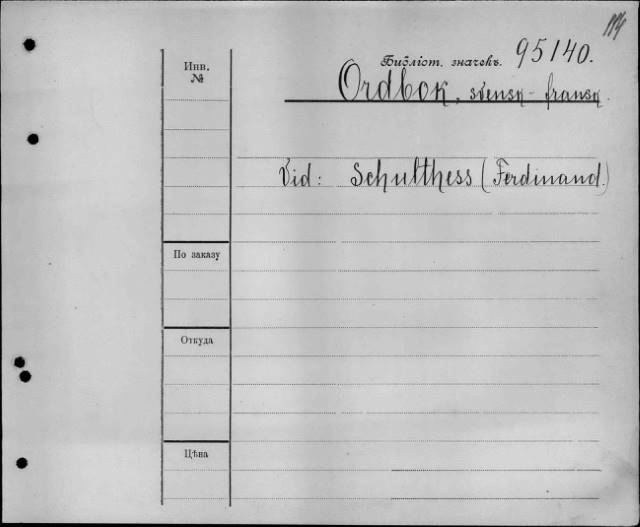 114
Библіот. значекъ. 95140.
Инв.
№
Ordbok, svensk-fransk.
Vid: Schulthess (Ferdinand.)
По заказу
Откуда
Цѣна